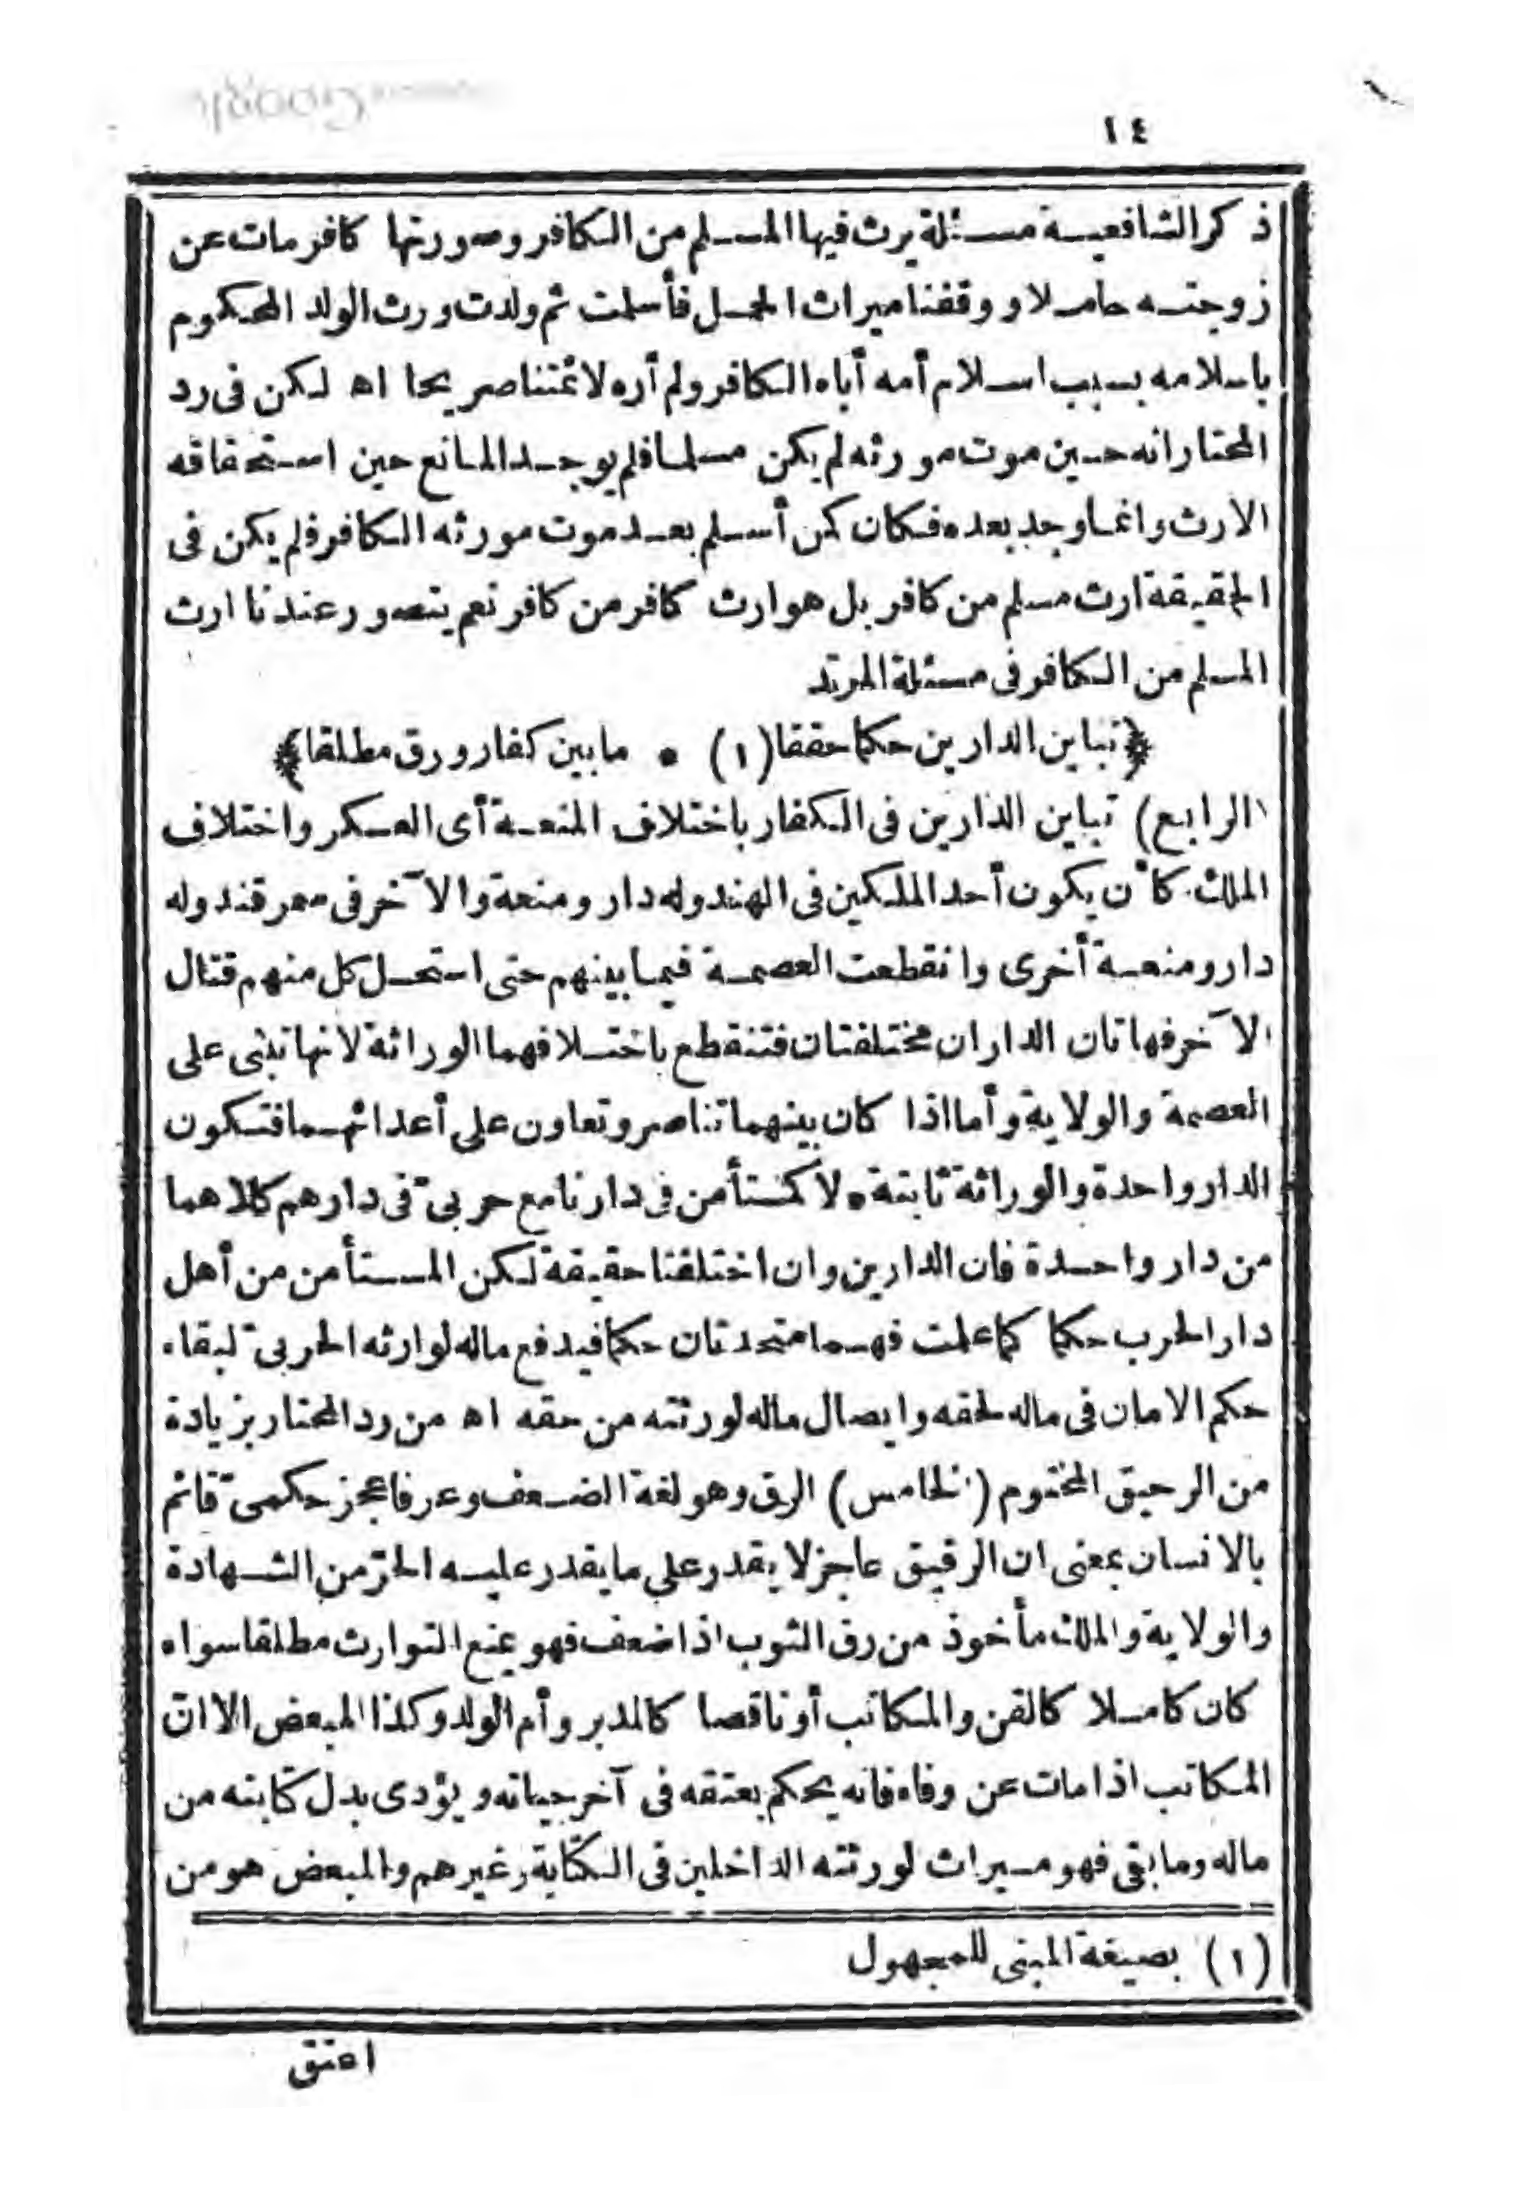 ١٤
ذكر الشافعية مسئلة يرث فيها المسلم من الكافر وصورتها كافر مات عن
زوجته حاملا ووقفنا ميراث الحمل فأسلمت ثم ولدت ورث الولد المحكوم
باسلامه بسبب اسلام أمه أباه الكافر ولم أره لائمتنا صريحا اه لكن فى رد
المحتار انه حين موت مورثه لم يكن مسلما فلم يوجد المانع حين استحقاقه
الارث وانما وجد بعده فكان كمن أسلم بعد موت مورثه الكافر فلم يكن فى
الحقيقة ارث مسلم من كافر بل هو ارث كافر من كافر نعم يتصور عندنا ارث
المسلم من الكافر فى مسئلة المرتد
﴿تباين الدارين حكما حققا (١) • ما بين كفار ورق مطلقا﴾
(الرابع) تباين الدارين فى الكفار باختلاف المنعة أى العسكر واختلاف
الملك كأن يكون أحد الملكين فى الهند وله دار ومنعة والآخر فى سمرقند وله
دار ومنعة أخرى وانقطعت العصمة فيما بينهم حتى استحل كل منهم قتال
الآخر فهاتان الداران مختلفتان فتنقطع باختلافهما الوراثة لانها تبنى على
العصمة والولاية وأما اذا كان بينهما تناصر وتعاون على أعدائهما فتكون
الدار واحدة والوراثة ثابتة • لا كمستأمن فى دارنا مع حربىّ فى دارهم كلاهما
من دار واحدة فان الدارين وان اختلفتا حقيقة لكن المستأمن من أهل
دار الحرب حكما كما علمت فهما متحدتان حكما فيدفع ماله لوارثه الحربىّ لبقاء
حكم الامان فى ماله لحقه وايصال ماله لورثته من حقه اه من رد المحتار بزيادة
من الرحيق المختوم (الخامس) الرق وهو لغة الضعف وعرفا عجز حكمىّ قائم
بالانسان بمعنى ان الرقيق عاجز لا يقدر على ما يقدر عليه الحرّ من الشهادة
والولاية والملك مأخوذ من رق الثوب اذا ضعف فهو يمنع التوارث مطلقا سواء
كان كاملا كالقن والمكاتب أو ناقصا كالمدبر وأم الولد وكذا المبعض الا انّ
المكاتب اذا مات عن وفاء فانه يحكم بعتقه فى آخر حياته ويؤدى بدل كتابته من
ماله وما بقى فهو ميراث لورثته الداخلين فى الكتابة وغيرهم والمبعض هو من
(١) بصيغة المبنى للمجهول
اعتق